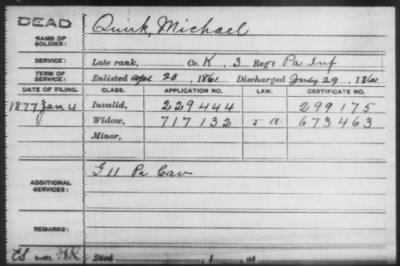 DEAD
NAME OF SOLDIER: Quirk, Michael
SERVICE: Late rank, Co. K, 3 Reg't Pa Inf
TERM OF SERVICE: Enlisted Apl 20, 1861 Discharged July 29, 1861
DATE OF FILING. CLASS. APPLICATION NO. LAW. CERTIFICATE NO.
1877 Jan 4 Invalid, 229444 299175
Widow, 717132 673463
Minor,
ADDITIONAL SERVICES: G 11 Pa Cav
REMARKS:
Died , 1 , at